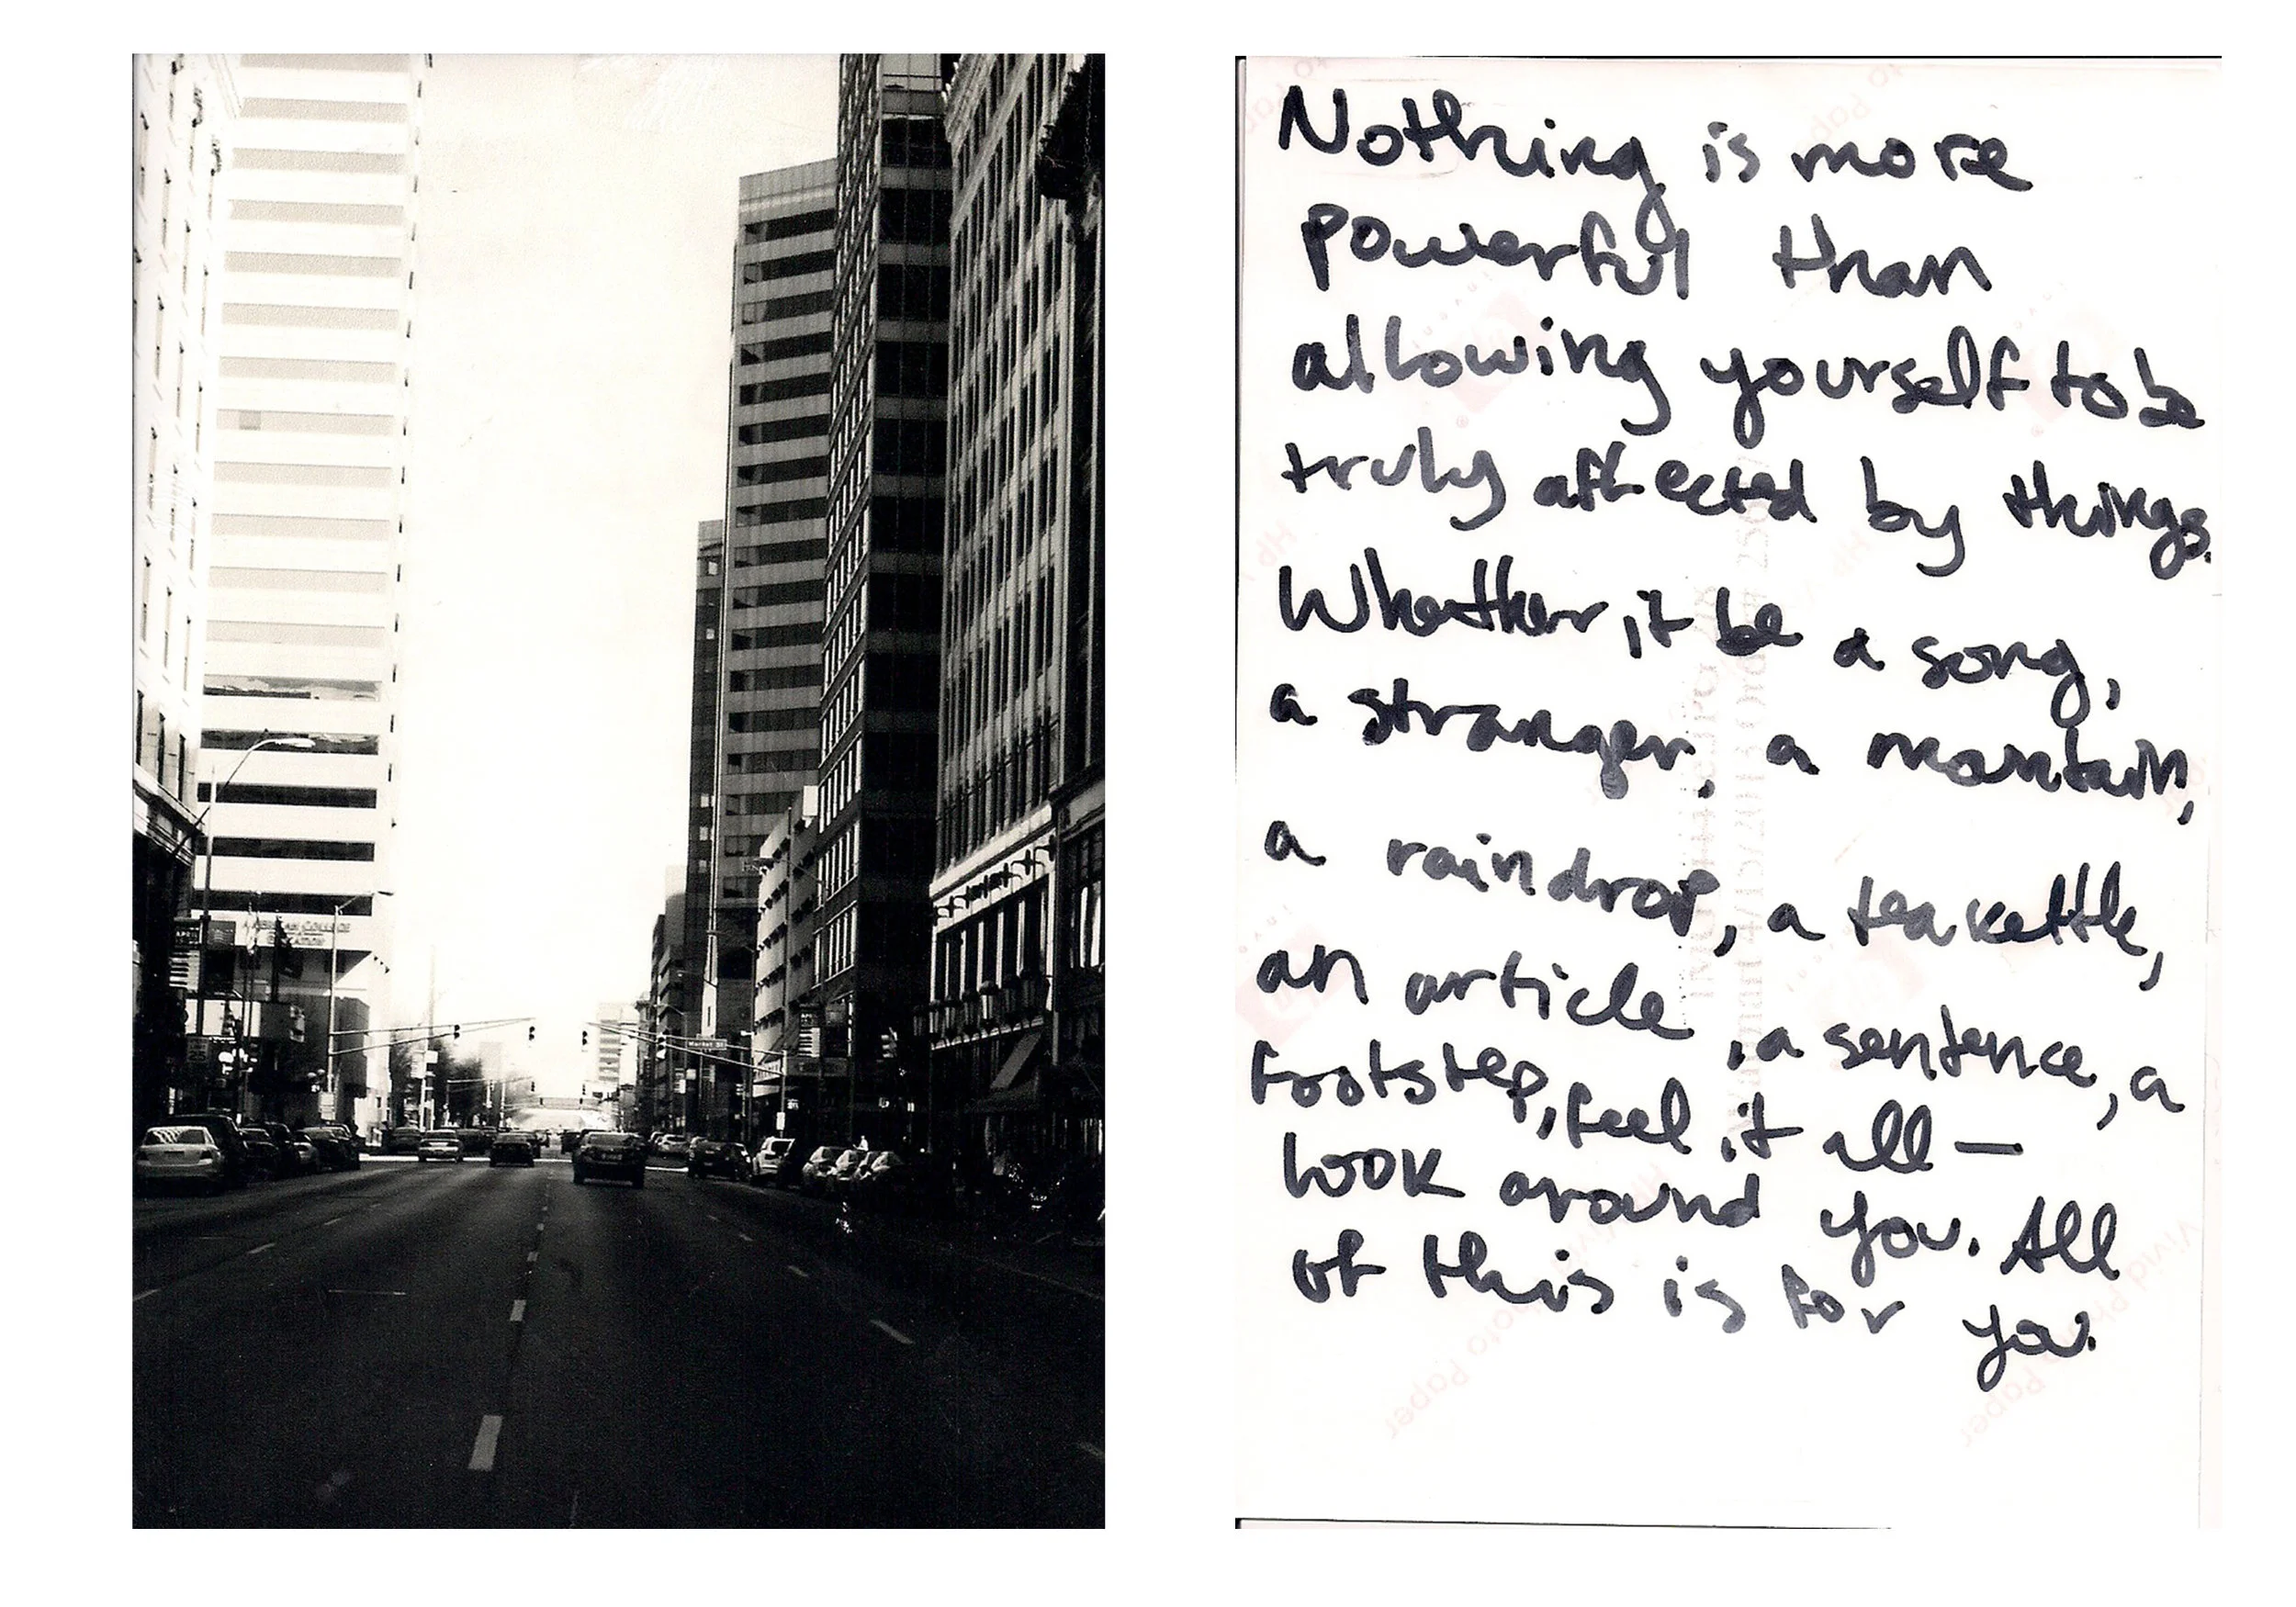 Market St
APRIL
25
Nothing is more
powerful than
allowing yourself to be
truly affected by things.
Whether it be a song,
a stranger, a mountain,
a raindrop, a tea kettle,
an article, a sentence, a
footstep, feel it all —
look around you. All
of this is for you.